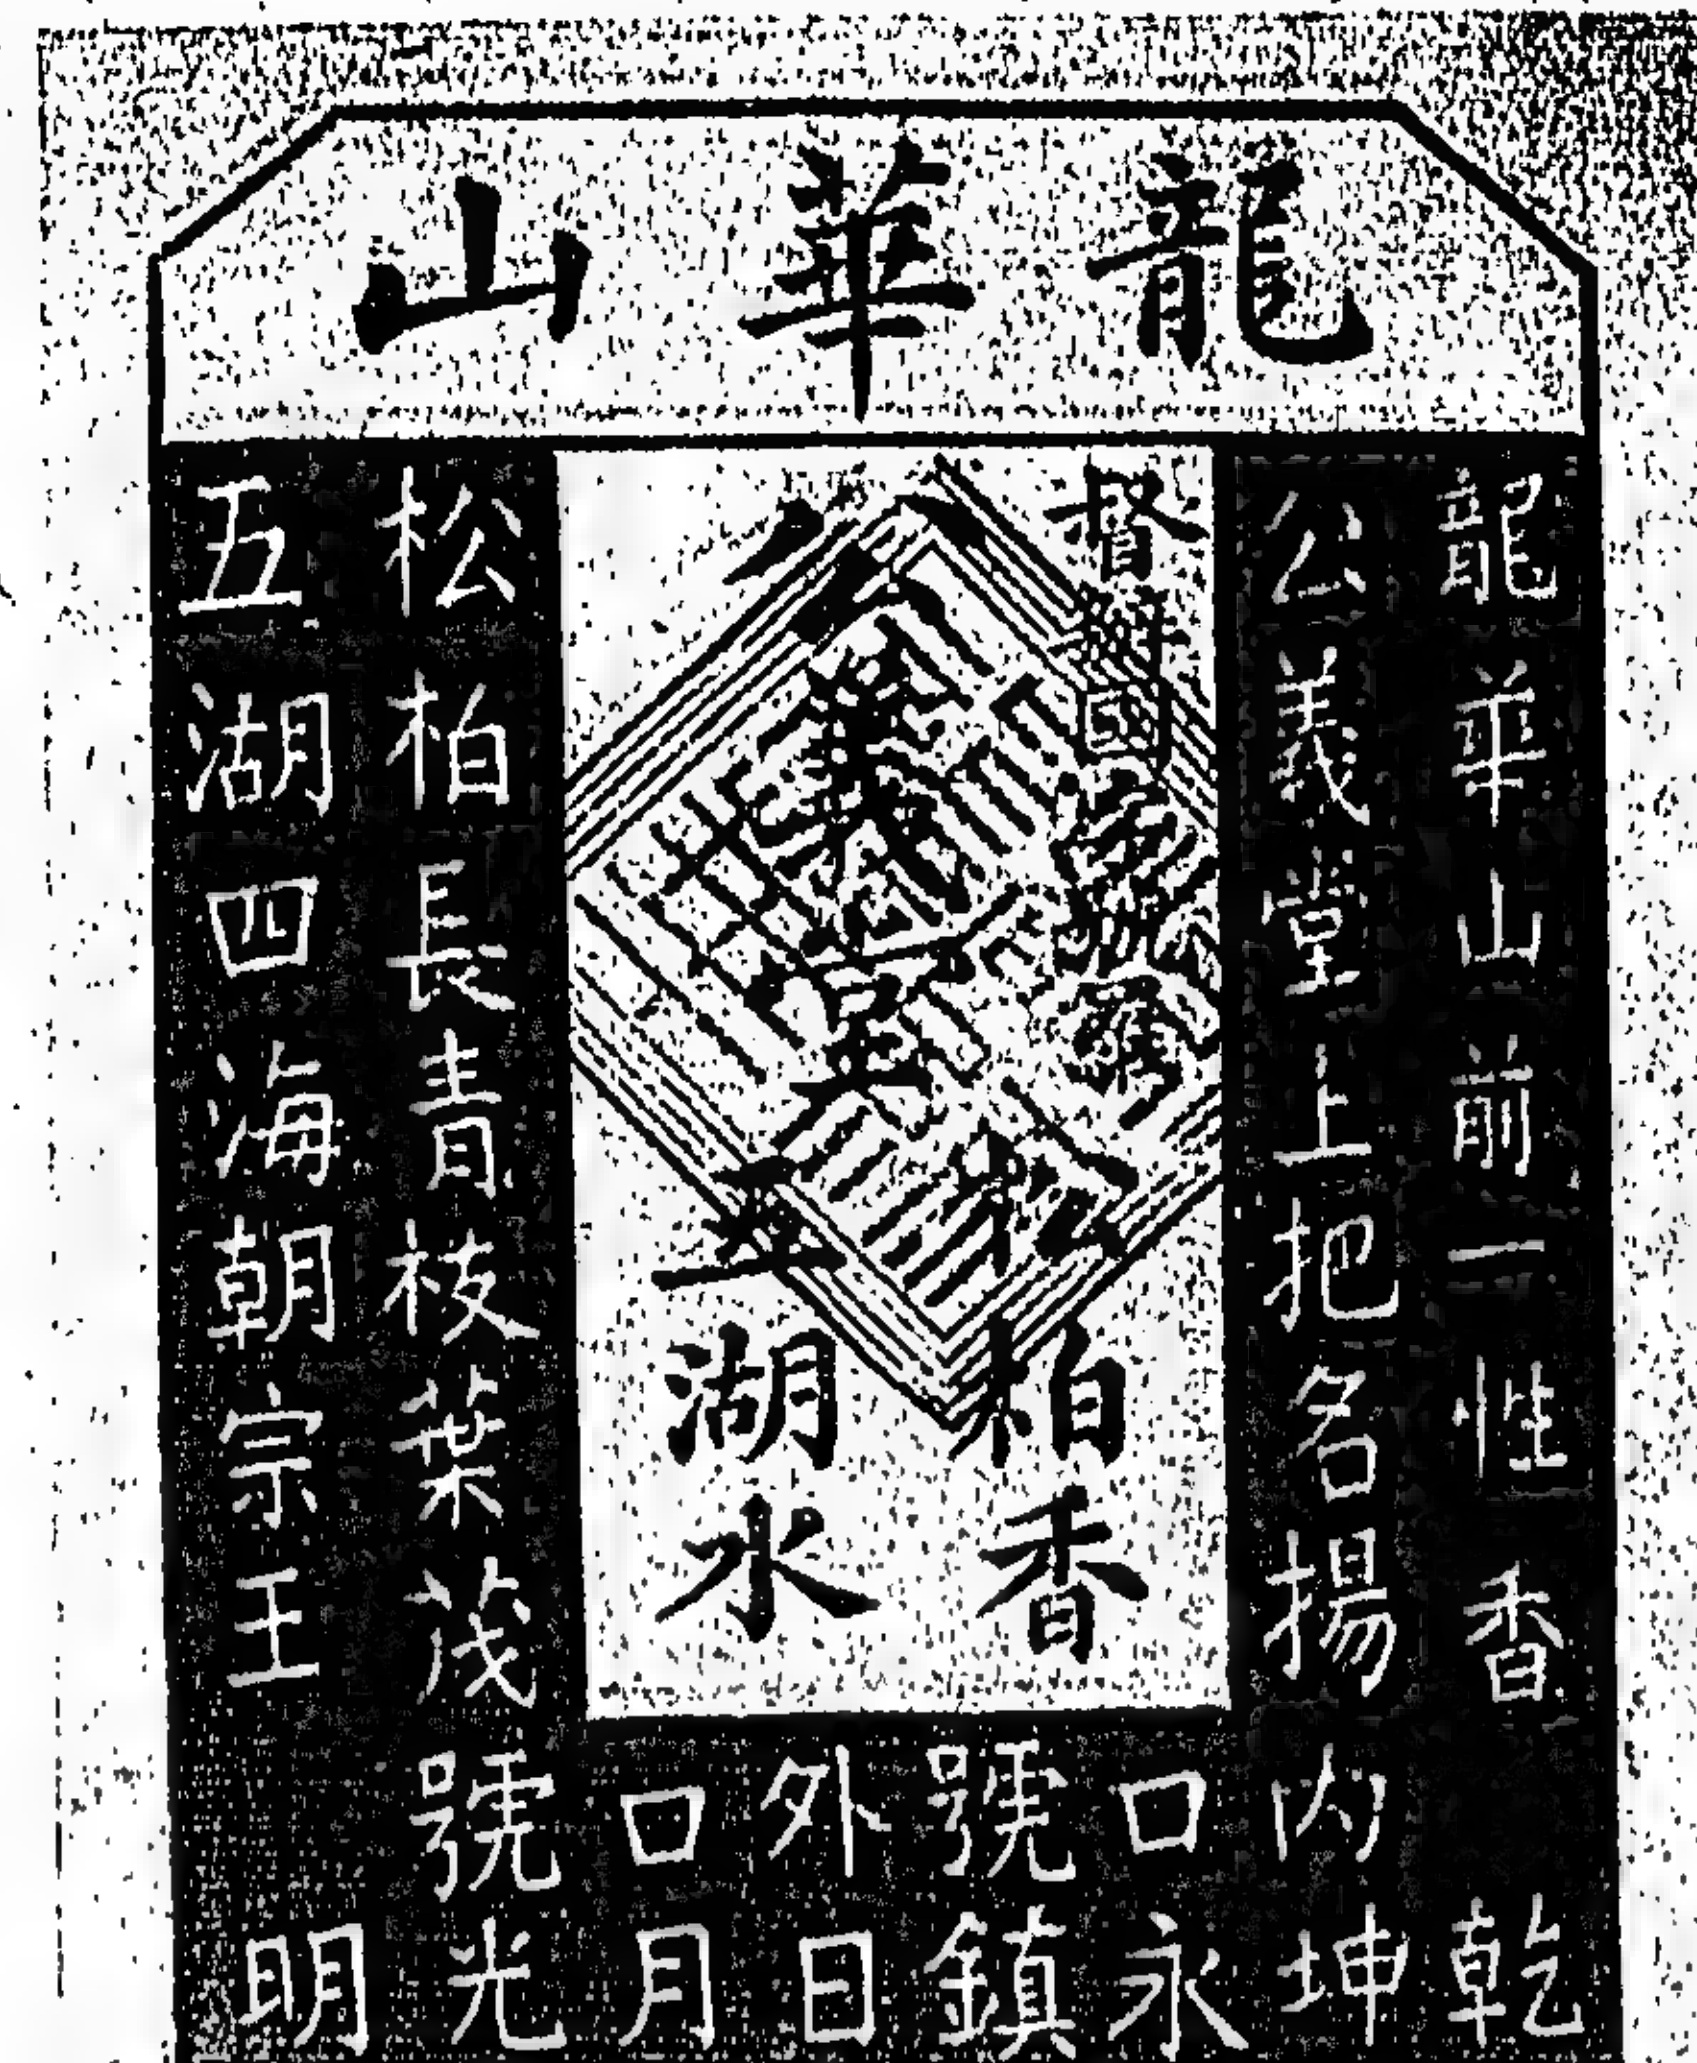 龍華山
龍華山前一性香
公義堂上把名揚
督辦國
公義堂
松柏香
五湖水
松柏長青枝葉茂
五湖四海朝宗王
內口號外口號
乾坤永鎮日月光明